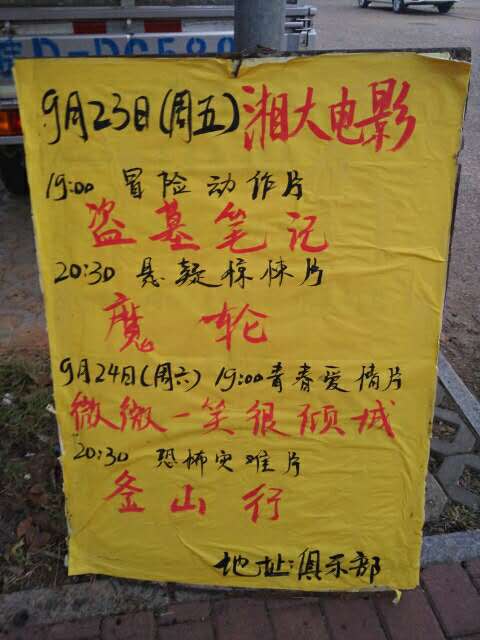 9月23日(周五)湘大电影
19:00 冒险动作片
盗墓笔记
20:30 悬疑惊悚片
魔轮
9月24日(周六) 19:00青春爱情片
微微一笑很倾城
20:30 恐怖灾难片
釜山行
地址:俱乐部